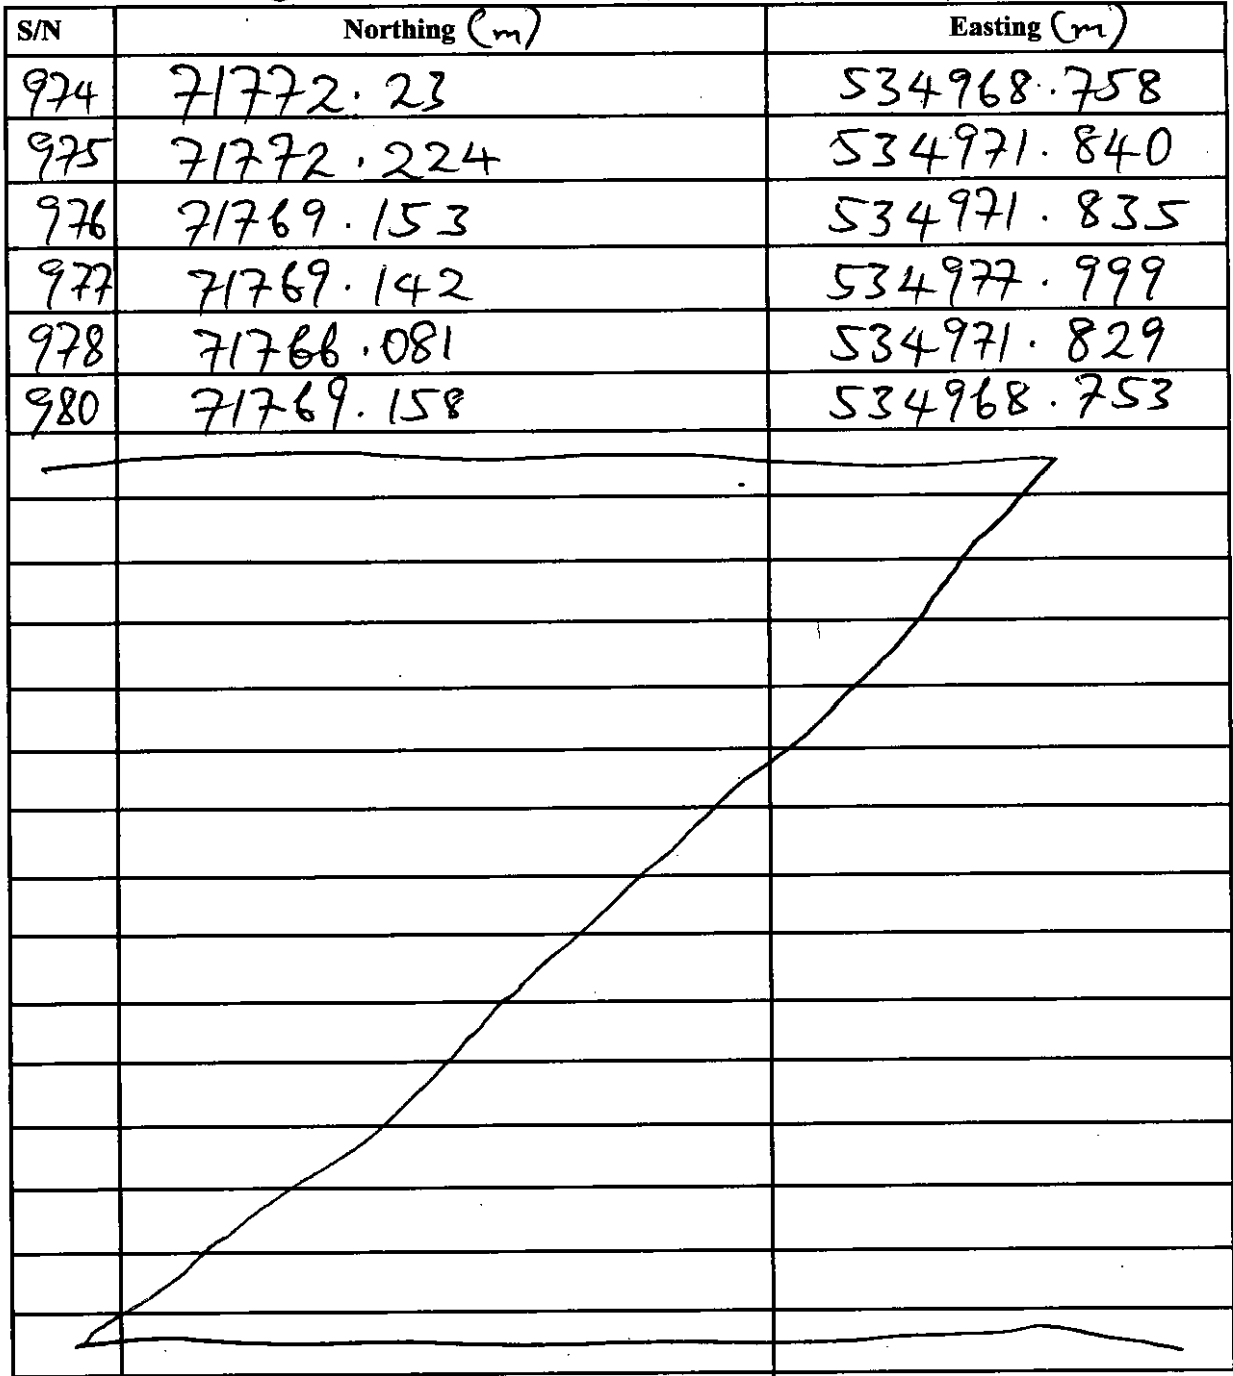 S/N Northing (m) Easting (m)
974 71772.23 534968.758
975 71772.224 534971.840
976 71769.153 534971.835
977 71769.142 534977.999
978 71766.081 534971.829
980 71769.158 534968.753